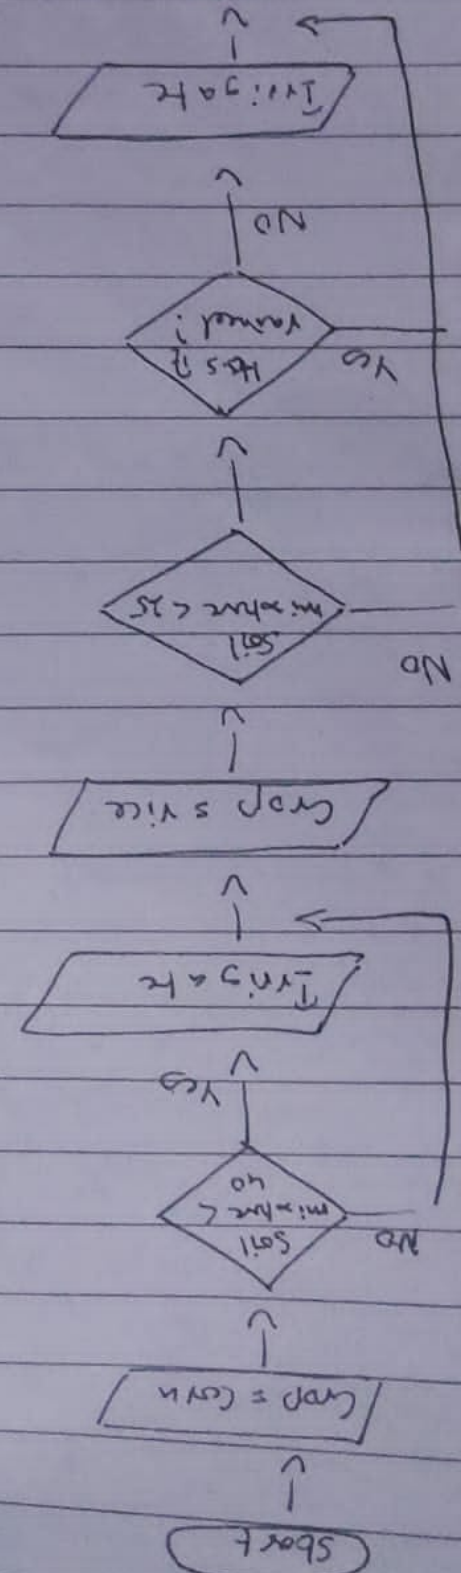 Start
Crop = Corn
Soil
mixture <
40
No
Yes
Irrigate
Crop = rice
Soil
mixture < 25
No
Has it
rained?
Yes
No
Irrigate